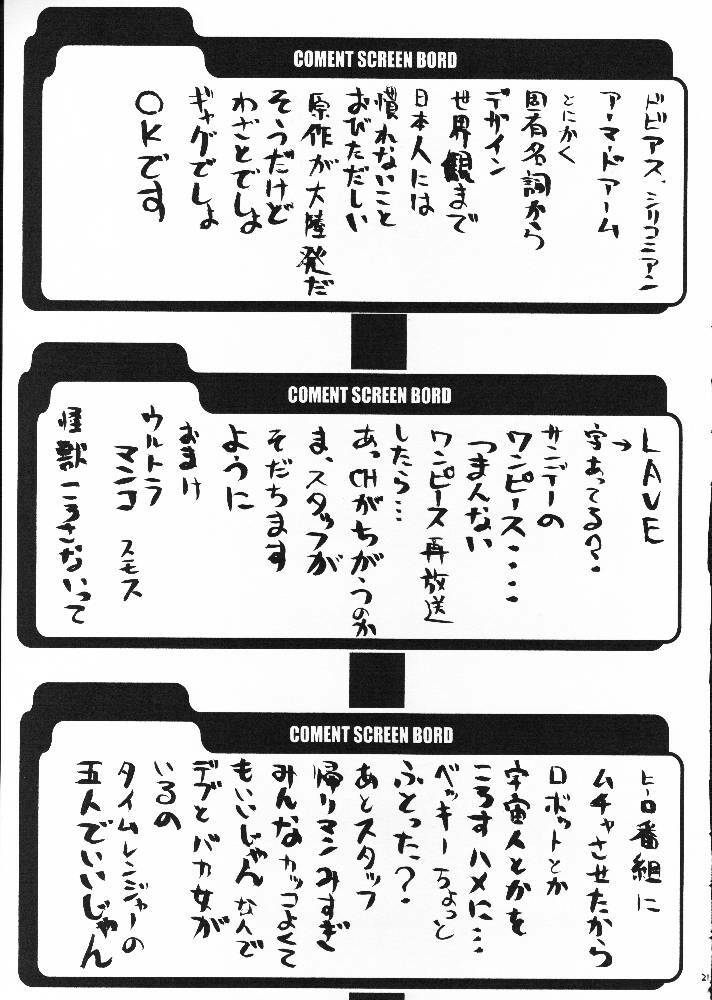 COMENT SCREEN BORD
ドビアス、シリコニアン
アーマードアーム
とにかく
固有名詞から
デザイン
世界観まで
日本人には
慣れないこと
おびただしい
原作が大陸発だ
そうだけど
わざとでしょ
ギャグでしょ
OKです
COMENT SCREEN BORD
LAVE
→字あってる?・
サンデーの
ワンピース・・・・
つまんない
ワンピース再放送
したら…
あっCHがちがうのか
ま、スタッフが
そだちます
ように
おまけ
ウルトラ
マンコスモス
怪獣ころさないって
COMENT SCREEN BORD
ヒーロー番組に
ムチャさせたから
ロボットとか
宇宙人とかを
ころすハメに…
ベッキーちょっと
ふとった?
あとスタッフ
帰りマンみすぎ
みんなカッコよくて
もいいじゃんなんで
デブとバカ女が
いるの
タイムレンジャーの
五人でいいじゃん
21